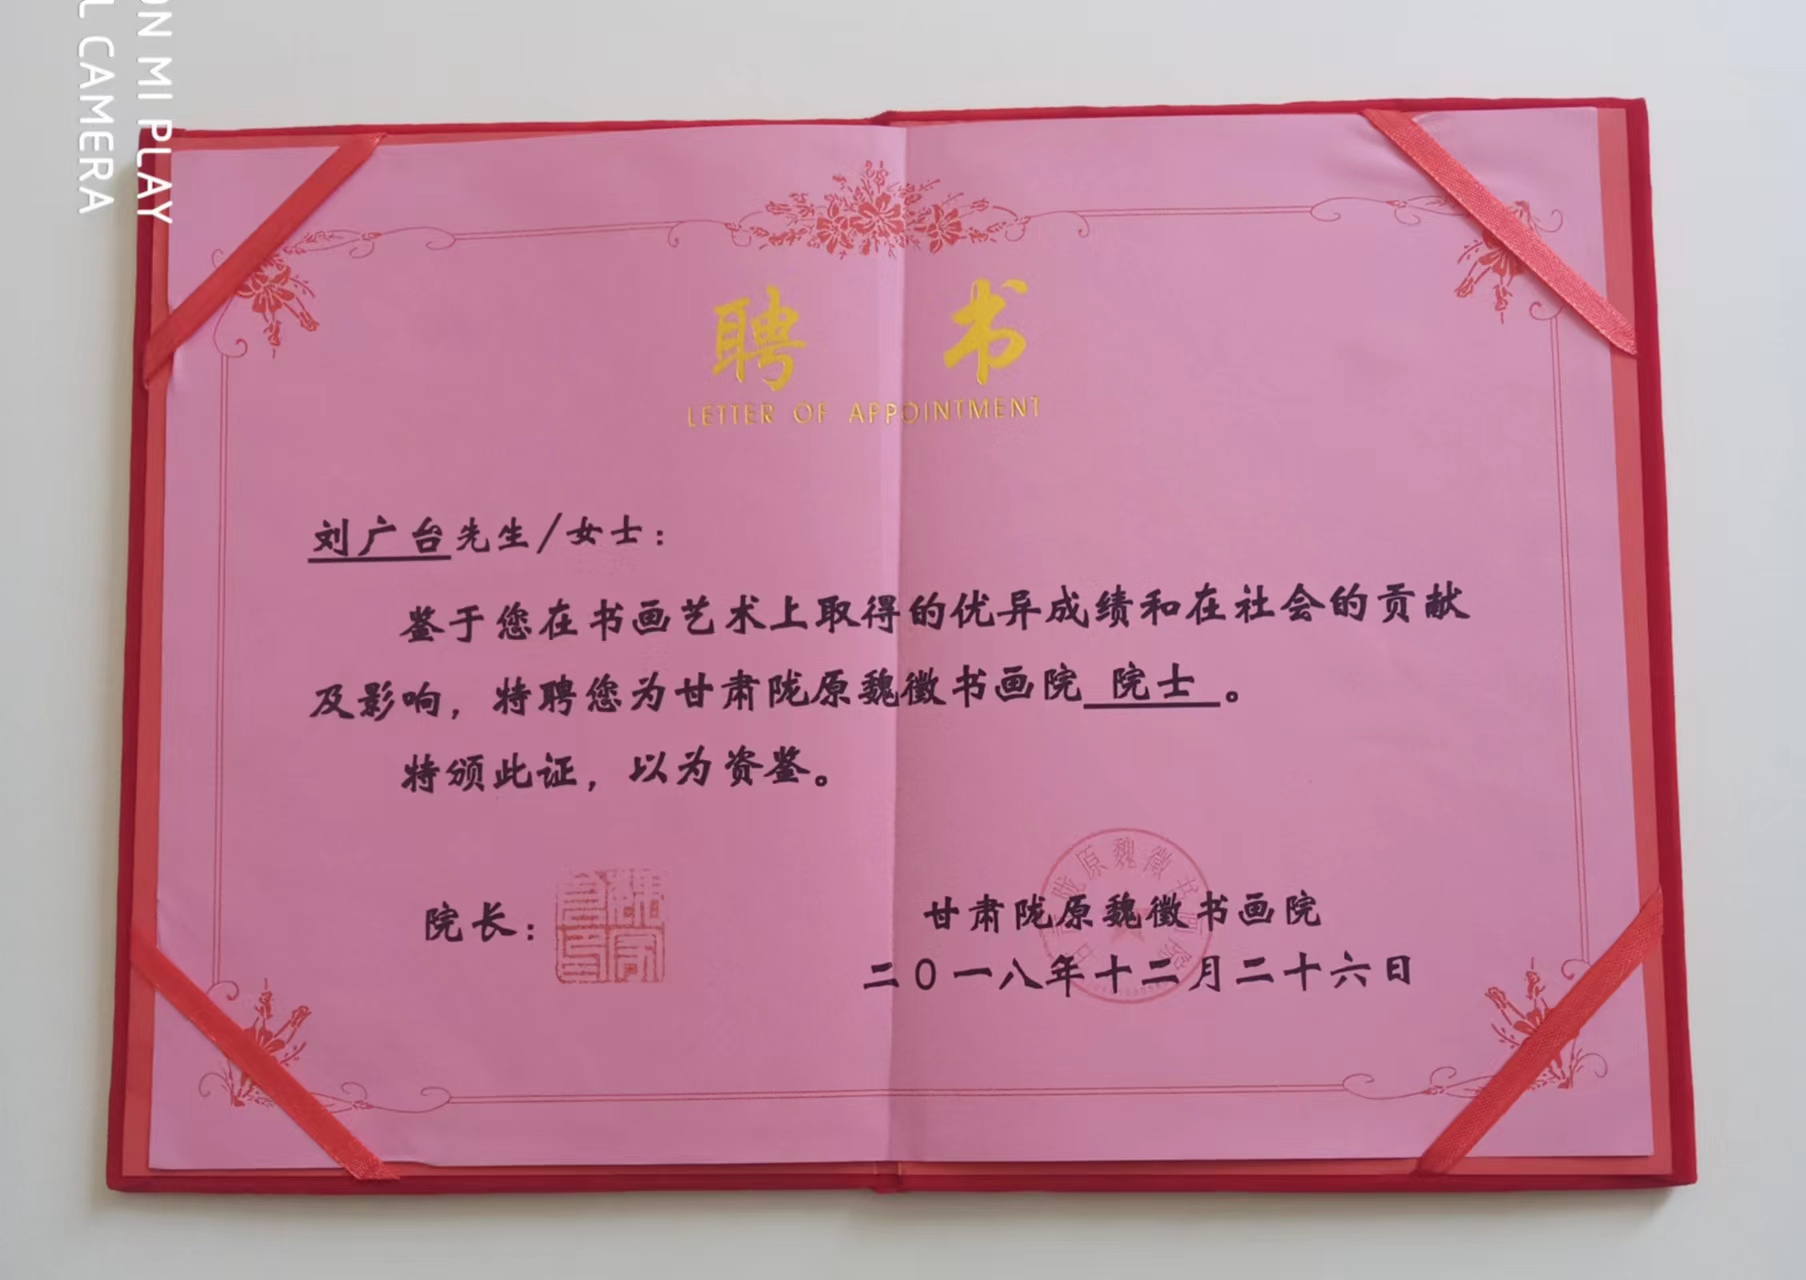 ON MI PLAY
L CAMERA
聘 书
LETTER OF APPOINTMENT
刘广台先生/女士：
鉴于您在书画艺术上取得的优异成绩和在社会的贡献
及影响，特聘您为甘肃陇原魏徵书画院 院士 。
特颁此证，以为资鉴。
院长：
甘肃陇原魏徵书画院
二0一八年十二月二十六日